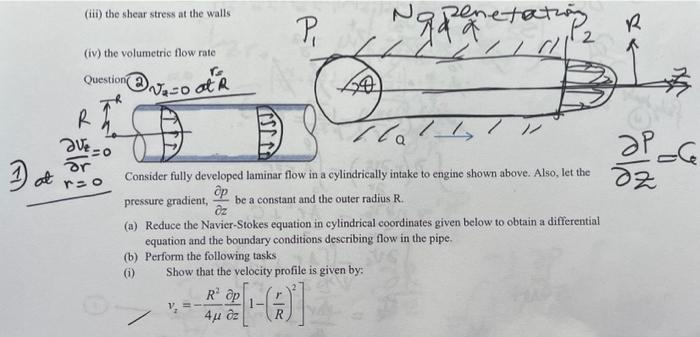 (iii) the shear stress at the walls
No penetration
P₁
P₂
R
(iv) the volumetric flow rate
Question
② v_z=0 at r=R
θ
R
R
∂v_z/∂r=0
1) at r=0
a
∂P/∂z = C
Consider fully developed laminar flow in a cylindrically intake to engine shown above. Also, let the
pressure gradient, ∂p/∂z be a constant and the outer radius R.
(a) Reduce the Navier-Stokes equation in cylindrical coordinates given below to obtain a differential
equation and the boundary conditions describing flow in the pipe.
(b) Perform the following tasks
(i) Show that the velocity profile is given by:
v_z = -R²/4μ ∂p/∂z [1-(r/R)²]